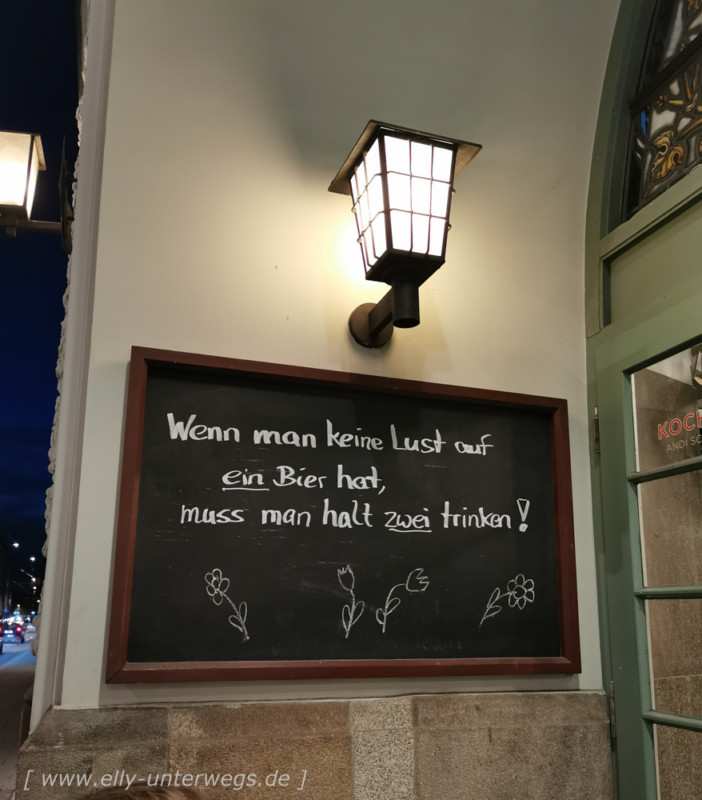 Wenn man keine Lust auf
ein Bier hat,
muss man halt zwei trinken!
KOCH
ANDI SC
[ www.elly-unterwegs.de ]